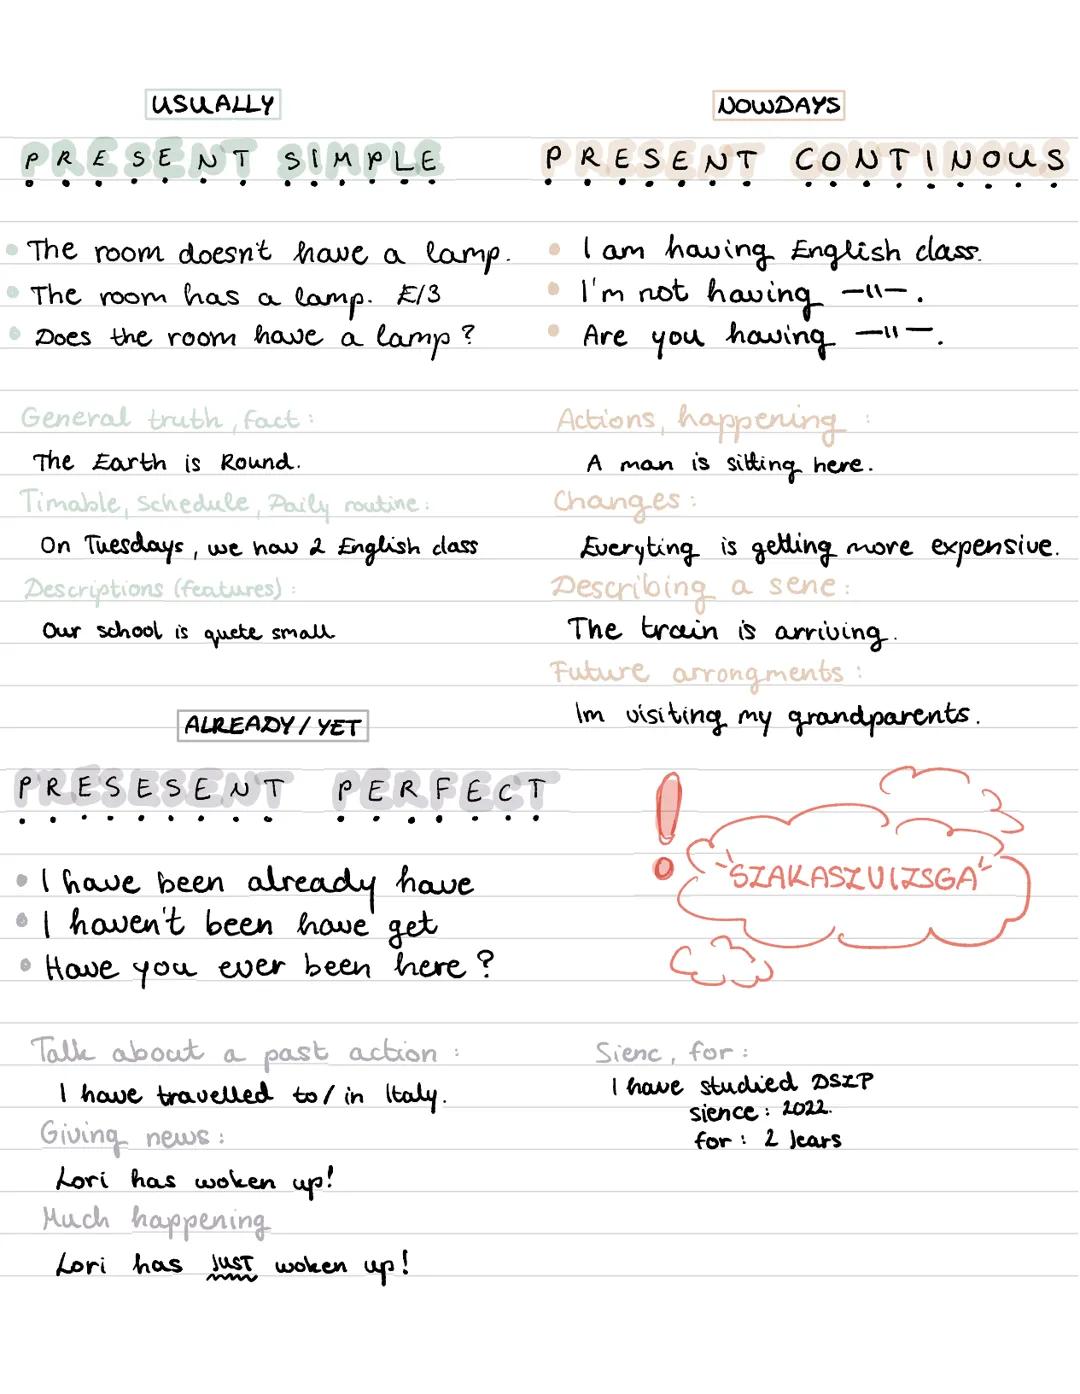 USUALLY
PRESENT SIMPLE
• The room doesn't have a lamp.
• The room has a lamp. E/3
• Does the room have a lamp?
General truth, fact:
The Earth is Round.
Timable, Schedule, Daily routine:
On Tuesdays, we hav 2 English class
Descriptions (features):
Our school is quete small
NOWDAYS
PRESENT CONTINOUS
• I am having English class.
• I'm not having —11—.
• Are you having —11—.
Actions, happening:
A man is sitting here.
Changes:
Everyting is getting more expensive.
Describing a sene:
The train is arriving.
Future arrongments:
Im visiting my grandparents.
ALREADY/YET
PRESESENT PERFECT
• I have been already have
• I haven't been have get
• Have you ever been here?
Talk about a past action:
I have travelled to/in Italy.
Giving news:
Lori has woken up!
Much happening
Lori has JUST woken up!
!
"SZAKASZVIZSGA"
Sienc, for:
I have studied DSZP
sience: 2022.
for: 2 Jears